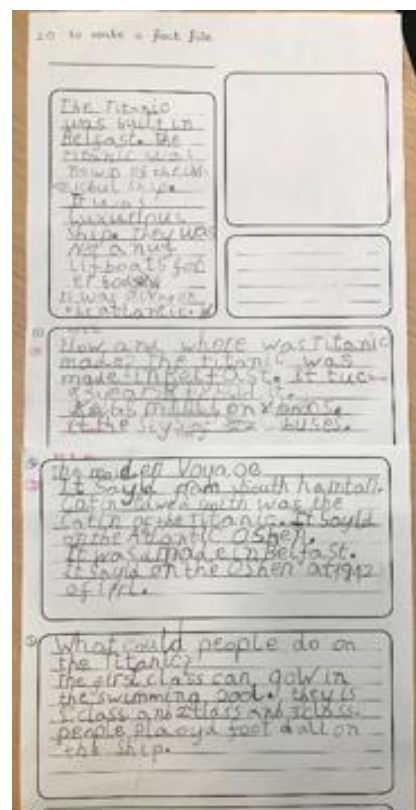 LO to write a fact file
The Titanic
was built in
Belfast. The
titanic was
ship.
It was
Luxurious
Ship. They was
Not a nuf
lifboats for
It was
the atlantic.
How and where was Titanic
made? The titanic was
made in Belfast. it tuc
buses.
The maiden Voyage
It Sayld from South hamton.
Catin edward smith was the
Catin of the Titanic. It Sayld
on the Atlantic Oshen.
It was made in Belfast.
it Sayld on the Oshen at 1912
What could people do on
the Titanic?
The first class can gow in
the swimming pool. they is
1 class and 2 class and 3 class.
people playd foot ball on
the Ship.